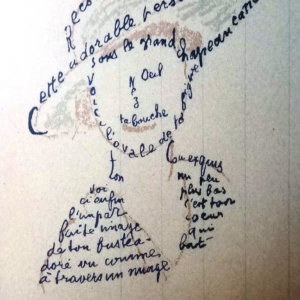 Reco
Cette adorable pers
sous le grand chapeau canot
Oeil
Nez
la bouche
Voici l'ovale de ta figure
ton
Cou exquis
voi
ci enfin
l'impar
faite image
de ton buste a
doré vu comme
à travers un nuage
un peu
plus bas
c'est ton
coeur
qui
bat